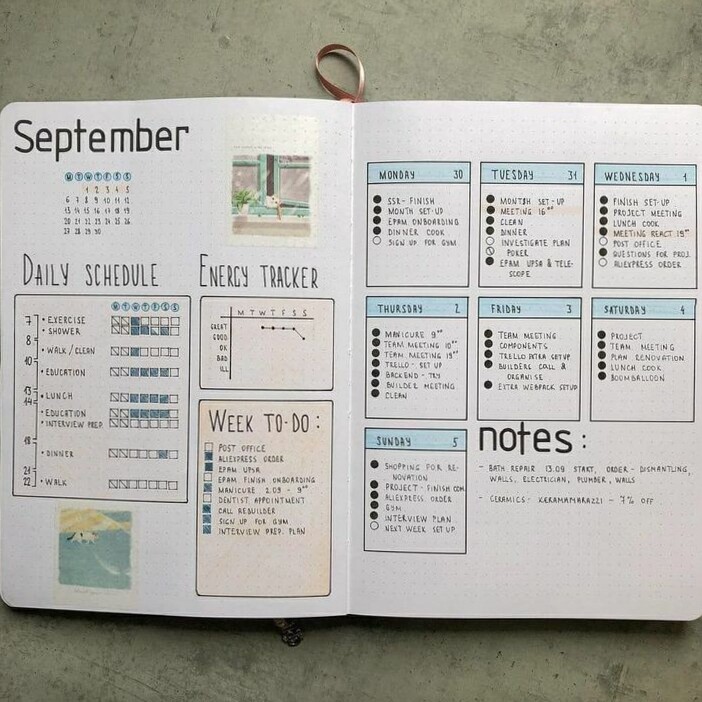 September
M T W T F S S
1 2 3 4 5
6 7 8 9 10 11 12
13 14 15 16 17 18 19
20 21 22 23 24 25 26
27 28 29 30
DAILY SCHEDULE
M T W T F S S
7 • EXERCISE
• SHOWER
8
• WALK / CLEAN
10
• EDUCATION
13
• LUNCH
14
• EDUCATION
• INTERVIEW PREP.
18
• DINNER
21
22 • WALK
ENERGY TRACKER
M T W T F S S
GREAT
GOOD
OK
BAD
ILL
WEEK TO-DO:
POST OFFICE
ALIEXPRESS ORDER
EPAM UPSA
EPAM FINISH ONBOARDING
MANICURE 2.09 - 9⁰⁰
DENTIST APPOINTMENT
CALL REBUILDER
SIGN UP FOR GYM
INTERVIEW PREP. PLAN
MONDAY 30
SSR - FINISH
MONTH SET-UP
EPAM ONBOARDING
DINNER COOK
SIGN UP FOR GYM
TUESDAY 31
MONTH SET-UP
MEETING 16⁰⁰
CLEAN
DINNER
INVESTIGATE PLAN
POKER
EPAM UPSA & TELE-
SCOPE
WEDNESDAY 1
FINISH SET-UP
PROJECT MEETING
LUNCH COOK
MEETING REACT 19⁰⁰
POST OFFICE
QUESTIONS FOR PROJ.
ALIEXPRESS ORDER
THURSDAY 2
MANICURE 9⁰⁰
TEAM MEETING 10⁰⁰
TEAM MEETING 19⁰⁰
TRELLO - SET UP
BACKEND - TRY
BUILDER MEETING
CLEAN
FRIDAY 3
TEAM MEETING
COMPONENTS
TRELLO EXTRA SETUP
BUILDERS CALL &
ORGANISE
EXTRA WEBPACK SETUP
SATURDAY 4
PROJECT
TEAM MEETING
PLAN RENOVATION
LUNCH COOK
BOOMBALLOON
SUNDAY 5
SHOPPING FOR RE-
NOVATION
PROJECT - FINISH COM.
ALIEXPRESS ORDER
GYM
INTERVIEW PLAN
NEXT WEEK SET UP
notes:
- BATH REPAIR 13.09 START, ORDER - DISMANTLING,
WALLS, ELECTRICIAN, PLUMBER, WALLS
- CERAMICS - KERAMAMARAZZI - 7% OFF